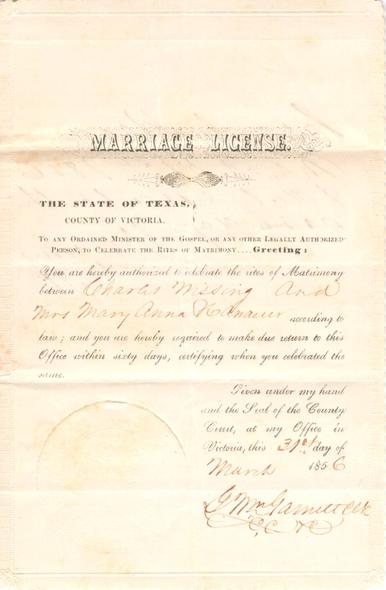 MARRIAGE LICENSE.
THE STATE OF TEXAS,
COUNTY OF VICTORIA.
TO ANY ORDAINED MINISTER OF THE GOSPEL, OR ANY OTHER LEGALLY AUTHORIZED
PERSON, TO CELEBRATE THE RITES OF MATRIMONY.... Greeting:
You are hereby authorized to celebrate the rites of Matrimony
between Charles Wissing And
Mrs Mary Anna according to
law; and you are hereby required to make due return to this
Office within sixty days, certifying when you celebrated the
same.
Given under my hand
and the Seal of the County
Court, at my Office in
Victoria, this 31st day of
March 1856